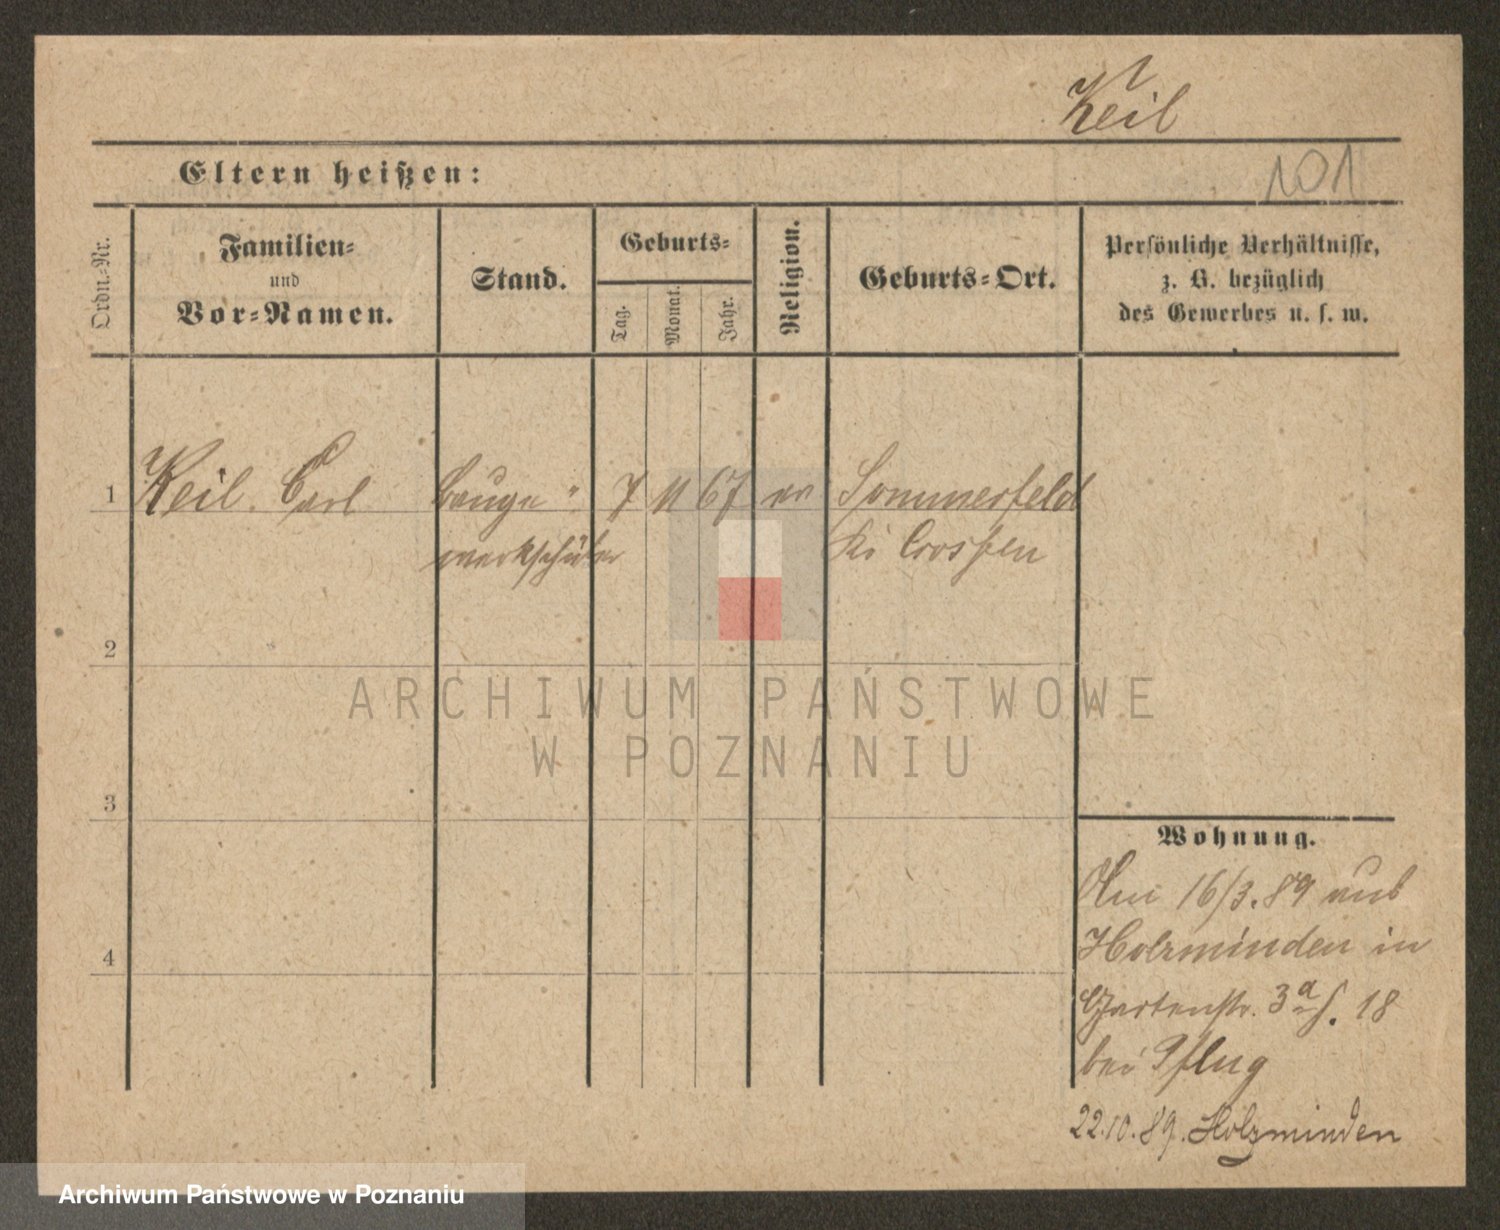 Keil
Eltern heißen:
101
Ordn.-Nr.
Familien-
und
Vor-Namen.
Stand.
Geburts-
Tag.
Monat.
Jahr.
Religion.
Geburts-Ort.
Persönliche Verhältnisse,
z. B. bezüglich
des Gewerbes u. s. w.
1 Keil. Carl Bauge- 7 11 67 ev Sommerfeld
werkschüler Kr Crossen
2
ARCHIWUM PAŃSTWOWE
W POZNANIU
3
Wohnung.
16/3.89 aus
4
Holzminden in
Gartenstr. 3a 18
bei Pflug
22.10.89. Holzminden
Archiwum Państwowe w Poznaniu